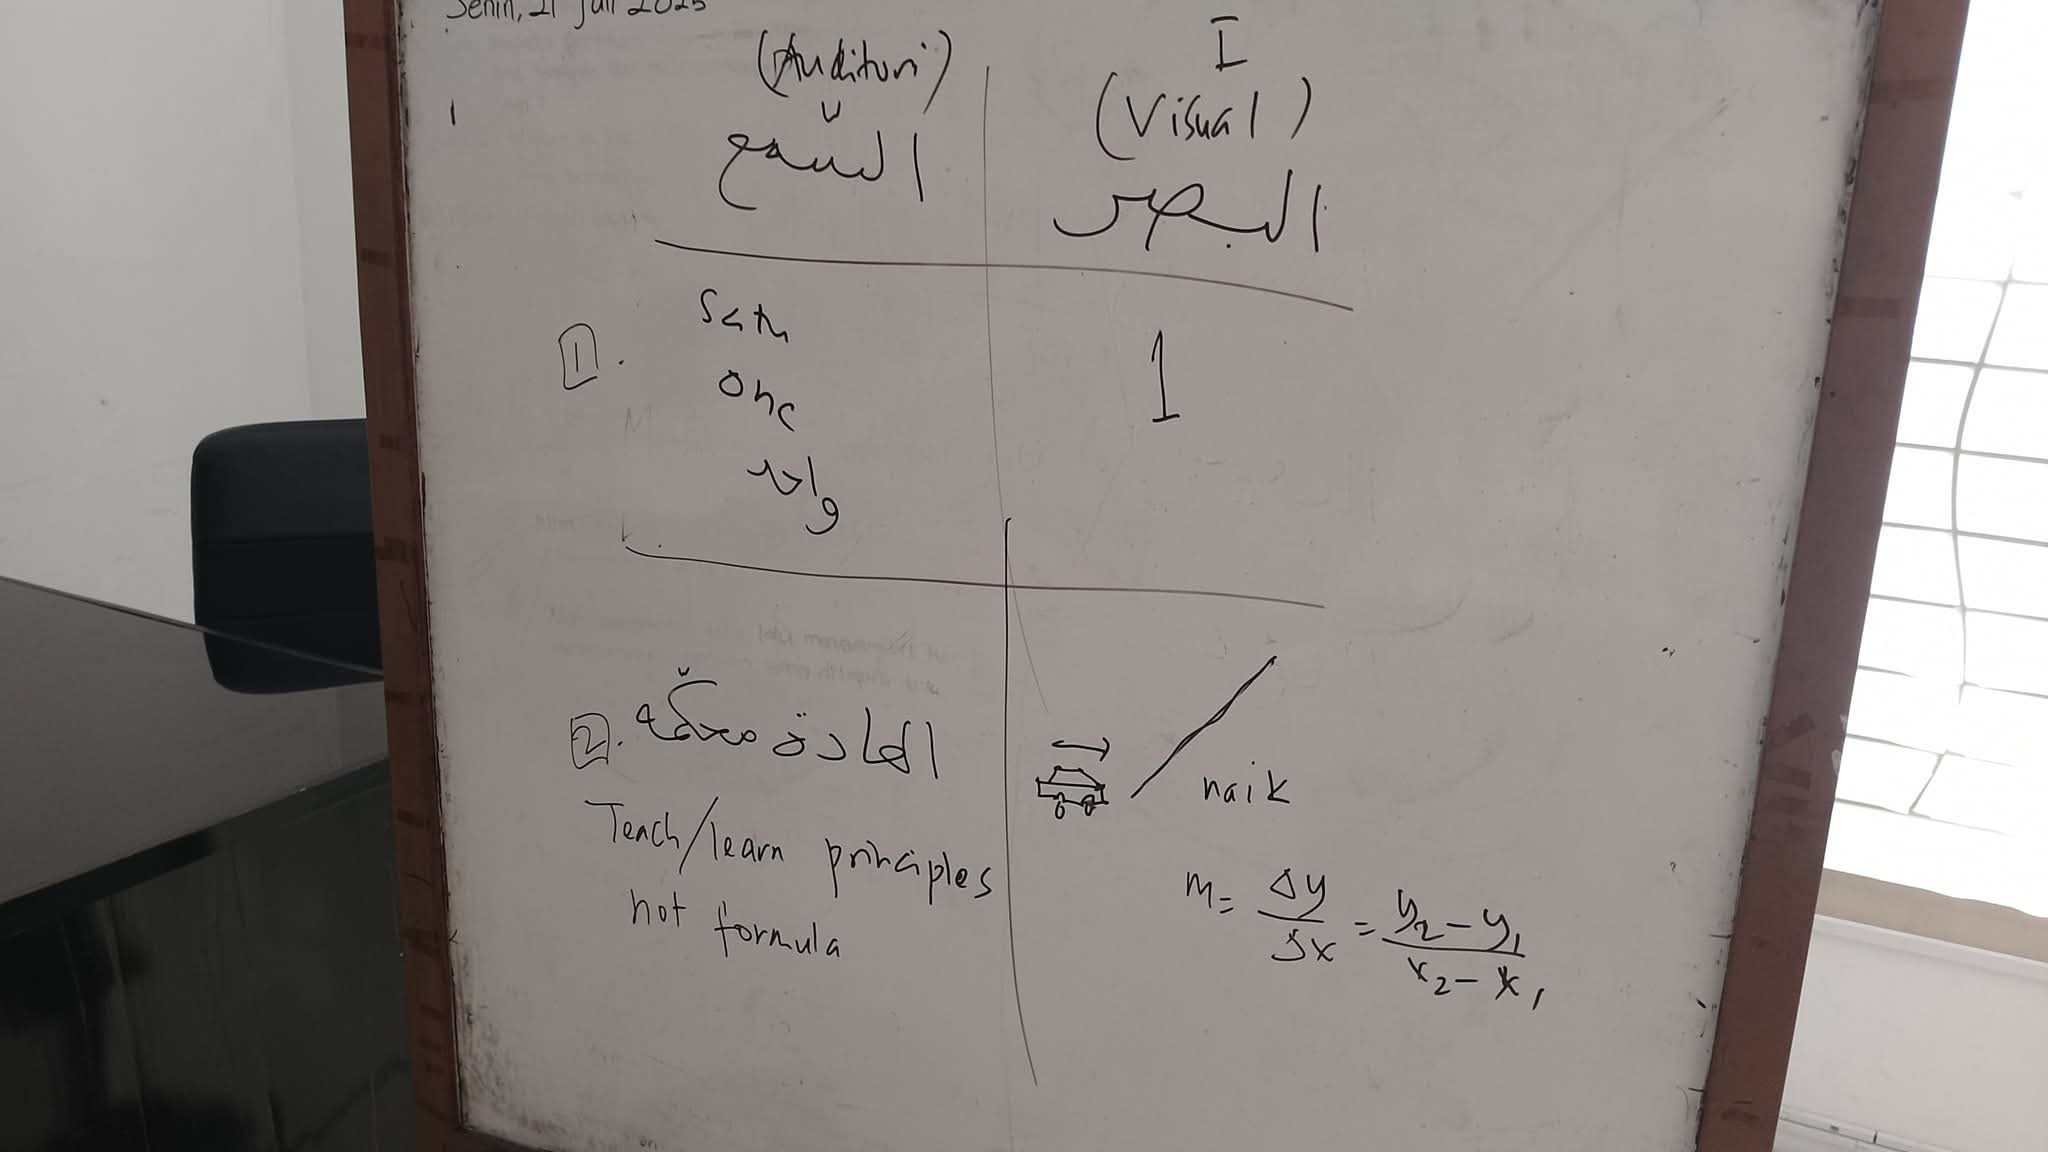 Senin, 21 Juli 2025
(Auditori)
السّمع
I
(Visual)
البصر
1. Satu
One
واحد
1
2. العادة محكّمة
Teach/learn principles
not formula
naik
m = Δy/Δx = y₂ - y₁/x₂ - x₁